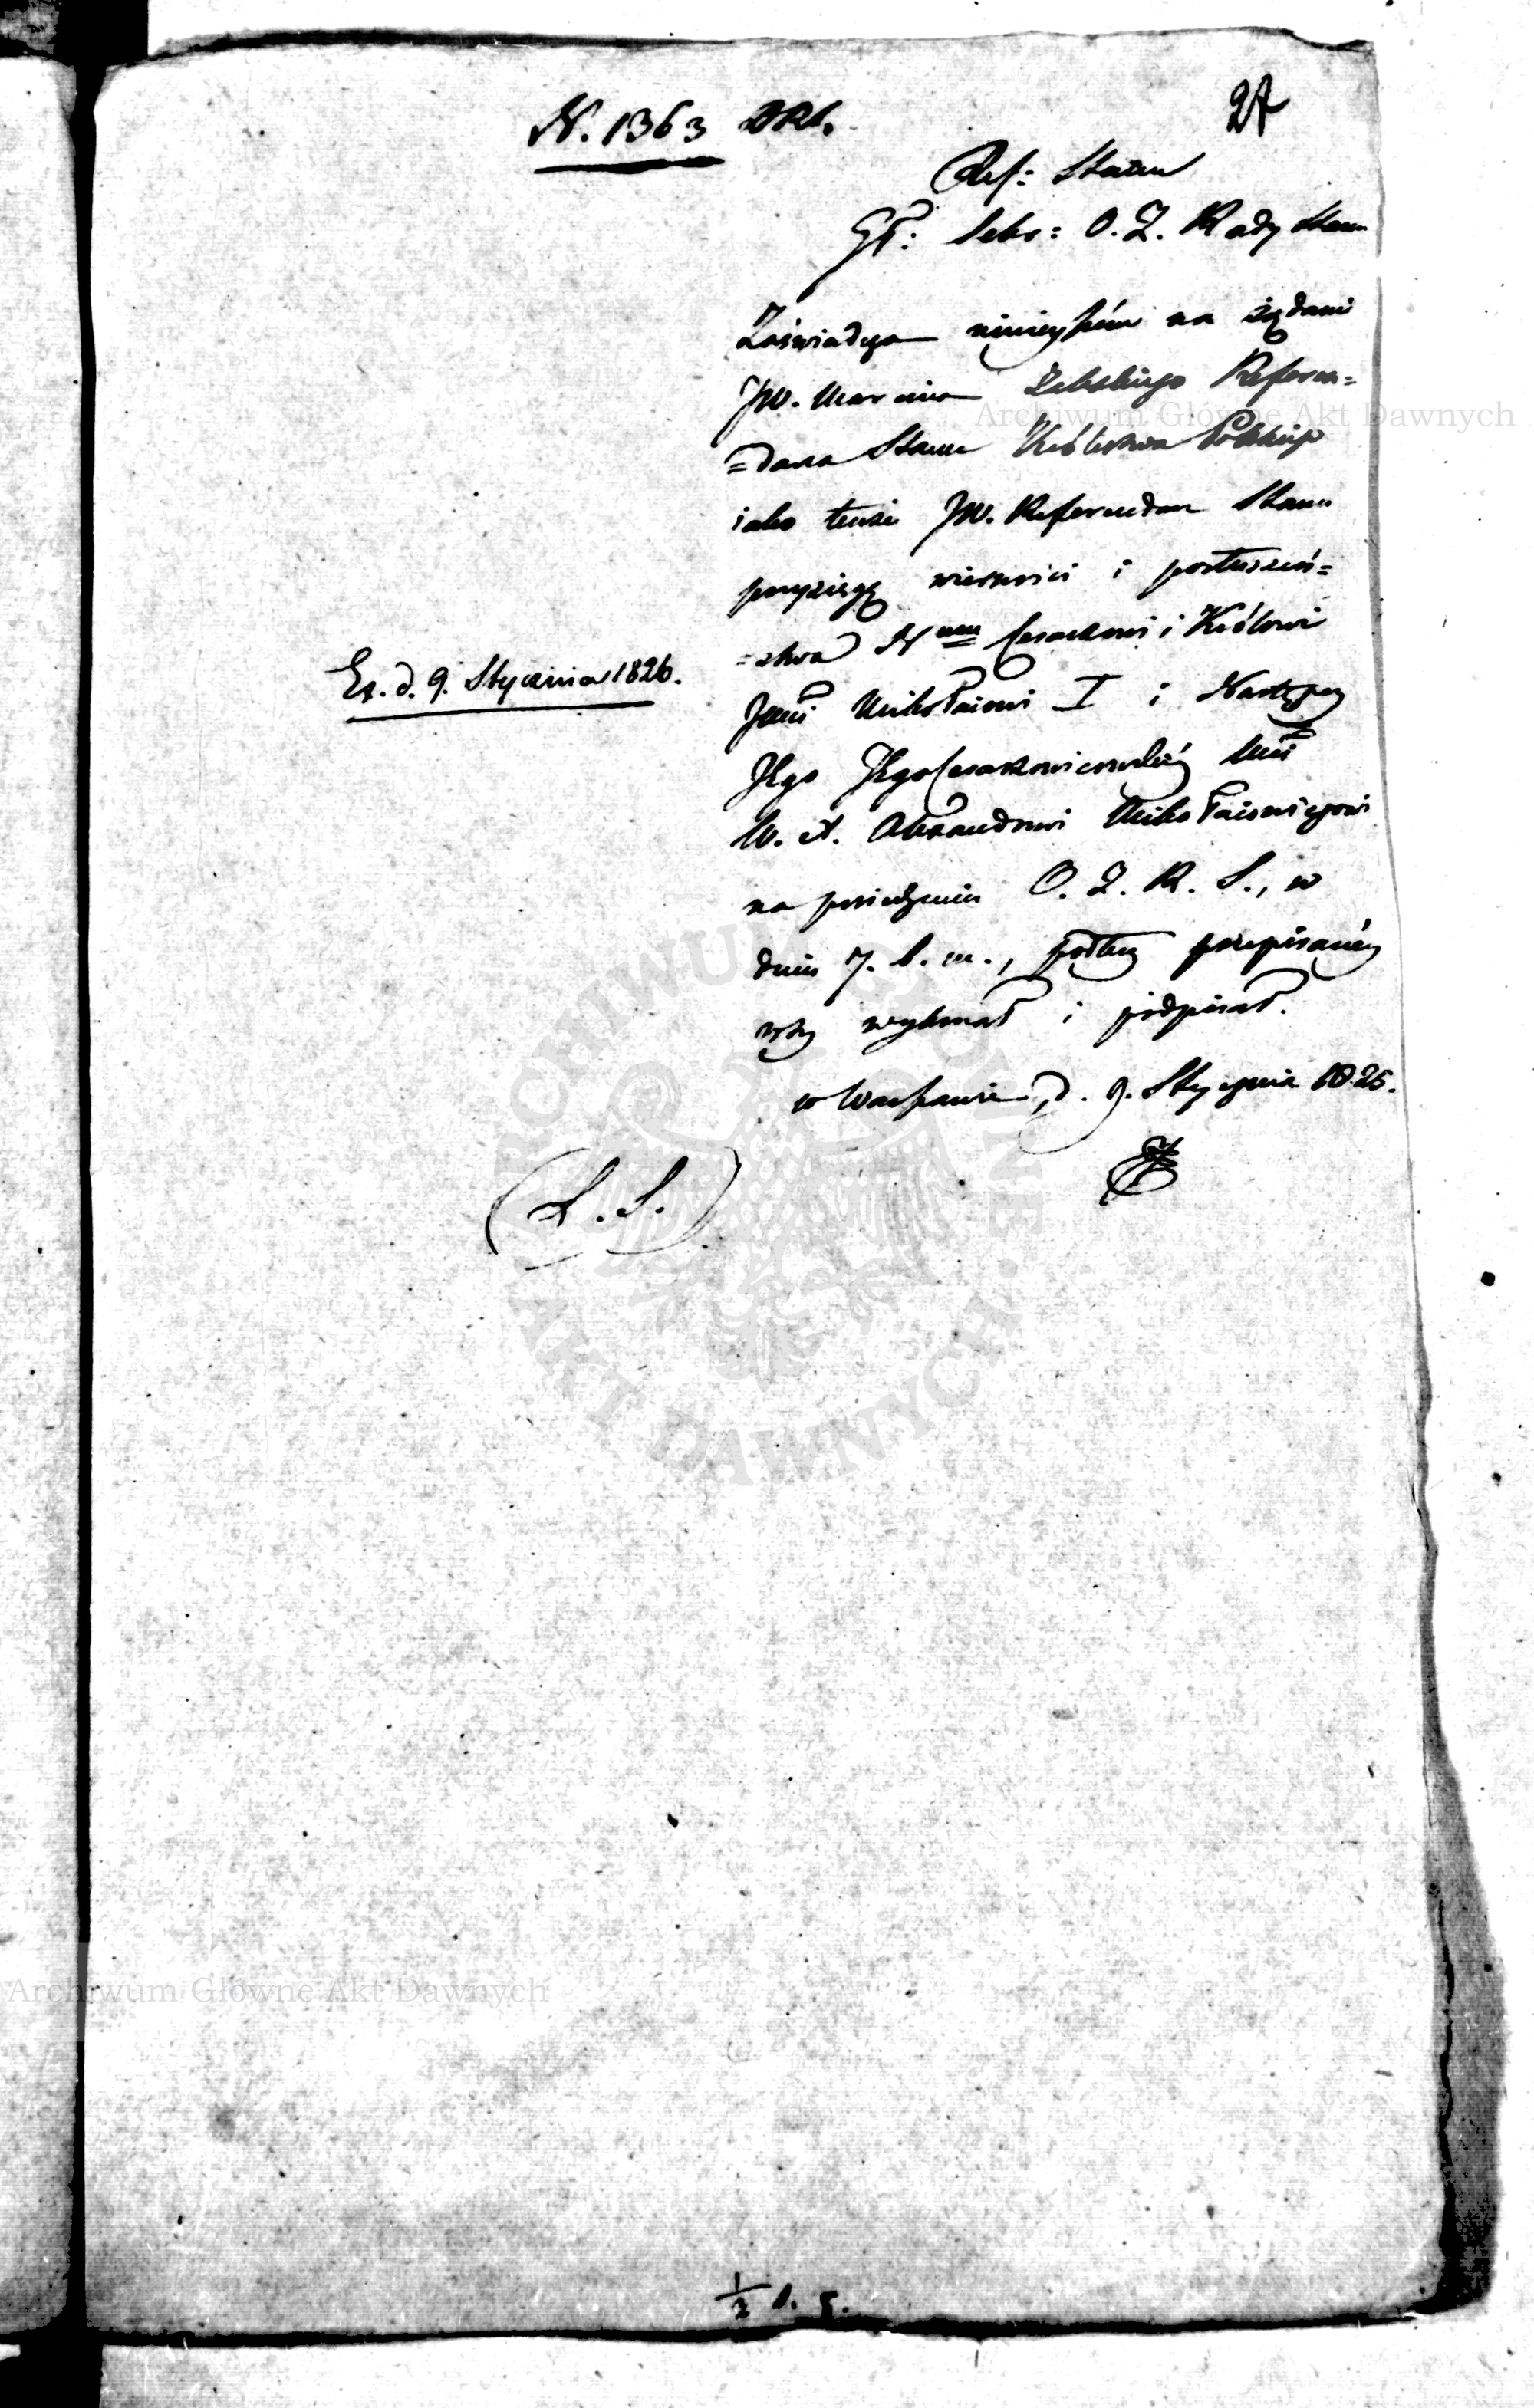 27
N. 1363 DKL.
Ref: Stanu
Gł: Sekr: O. Z. Rady Stanu
Zaświadcza ninieyszém na żądanie
JW. Marcina Zaleskiego Referen=
=darza Stanu Królestwa Polskiego
iako tenże JW. Referendarz Stanu
przysięgę wierności i posłuszeń=
=stwa Nmu Cesarzowi i Królowi
Jmci Mikołaiowi I i Następcy
Jego Jego Cesarzowiczowskiéy Mci
W. X. Alexandrowi Mikołaiewiczowi
na posiedzeniu O. Z. R. S., w
dniu 7. b. m., podług przepisanéy
roty wykonał i podpisał.
w Warszawie, d. 9. Stycznia 1826.
Ex. d. 9. Stycznia 1826.
(L.S.)
1/2 a. s.
Archiwum Główne Akt Dawnych
Archiwum Główne Akt Dawnych
ARCHIWUM GŁÓWNE AKT DAWNYCH